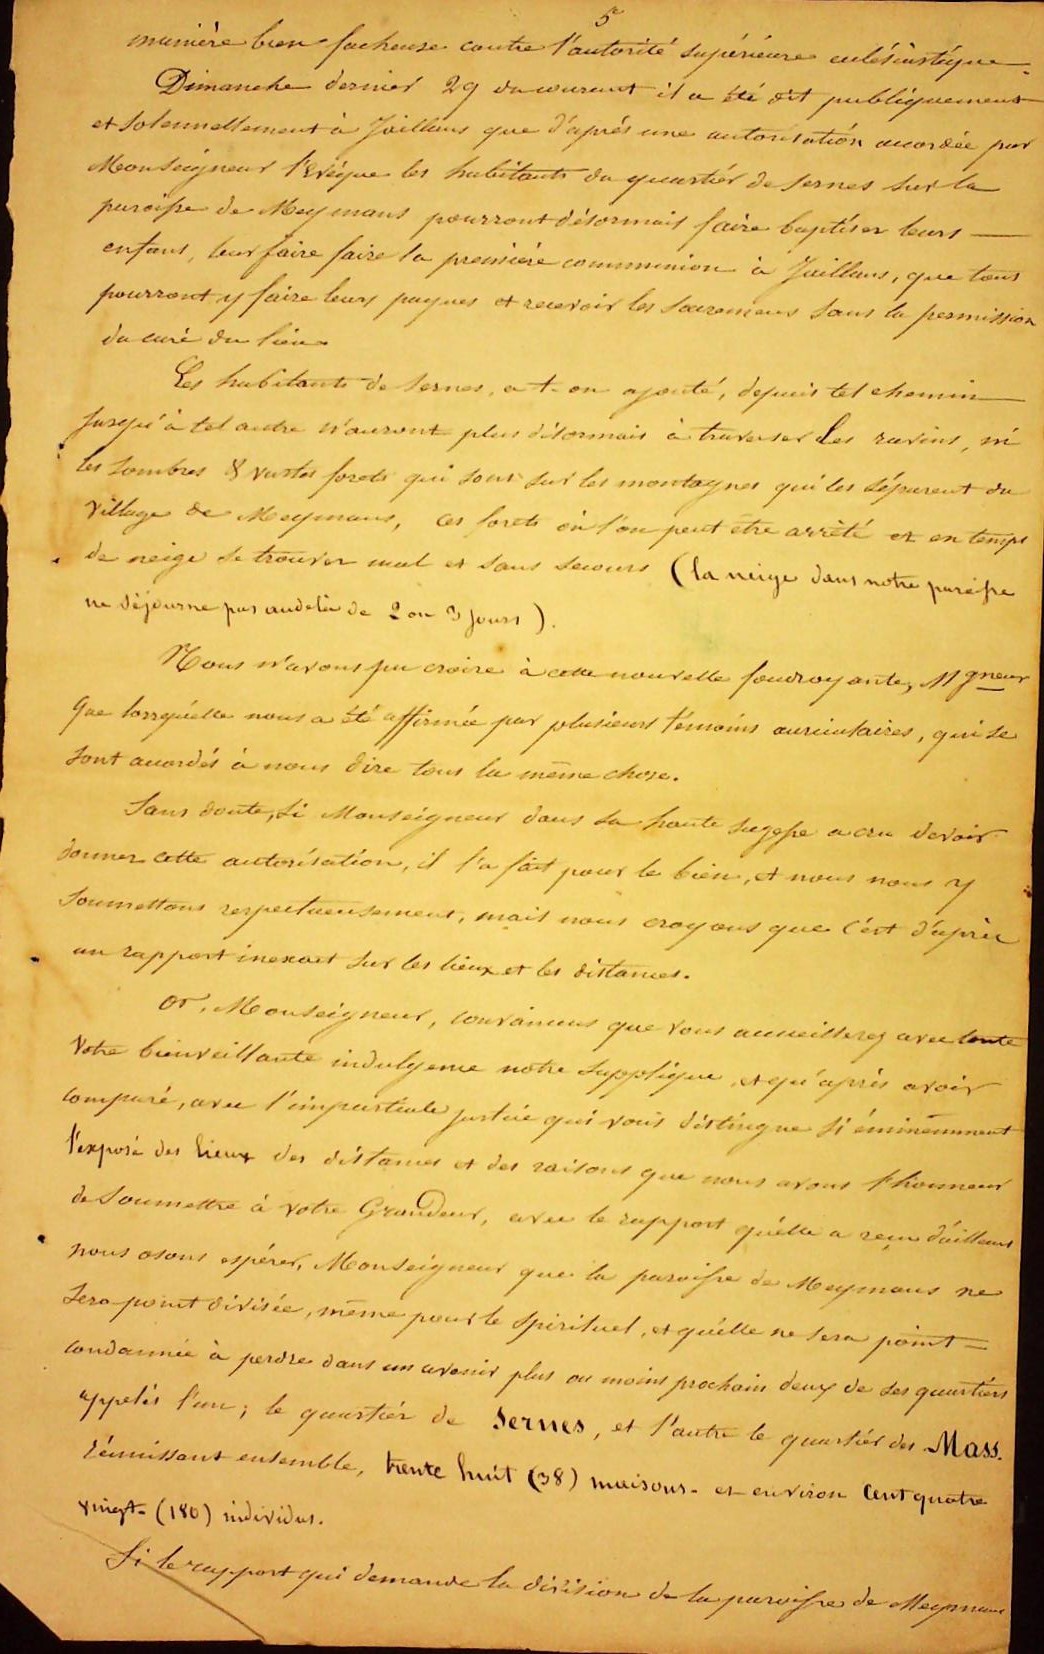 5
manière bien facheuse contre l'autorité supérieure eclésiastique.
Dimanche dernier 29 du courant il a été dit publiquement
et solennellement à Jaillans que d'après une autorisation accordée par
Monseigneur l'Evêque les habitants du quartier de Sernes sur la
paroisse de Meymans pourront désormais faire baptiser leurs
enfans, leur faire faire la première communion à Jaillans, que tous
pourront y faire leurs paques et recevoir les Sacremens sans la permission
du curé du lieu.
Les habitants de Sernes, a-t-on ajouté, depuis tel chemin
jusqu'à tel autre n'auront plus désormais à traverser les ravins, ni
les sombres & vastes forets qui sont sur les montagnes qui les séparent du
village de Meymans, ces forets où l'on peut être arrêté et en temps
de neige se trouver mal et sans secours (la neige dans notre paroisse
ne séjourne pas audela de 2 ou 3 jours).
Nous n'avons pu croire à cette nouvelle foudroyante, Mgneur
que lorsqu'elle nous a été affirmée par plusieurs témoins auriculaires, qui se
sont accordés à nous dire tous la même chose.
Sans doute, si Monseigneur dans sa haute sagesse a cru devoir
donner cette autorisation, il l'a fait pour le bien, et nous nous y
soumettons respectueusement, mais nous croyons que c'est d'après
un rapport inexact sur les lieux et les distances.
Or, Monseigneur, convaincus que vous accueillerez avec toute
votre bienveillante indulgence notre supplique, et qu'après avoir
comparé, avec l'impartiale justice qui vous distingue si éminemment
l'exposé des lieux des distances et des raisons que nous avons l'honneur
de soumettre à votre Grandeur, avec le rapport qu'elle a reçu d'ailleurs
nous osons espérer, Monseigneur que la paroisse de Meymans ne
sera point divisée, même pour le spirituel, et qu'elle ne sera point
condamnée à perdre dans un avenir plus ou moins prochain deux de ses quartiers
appelés l'un; le quartier de Sernes, et l'autre le quartier des Mass.
réunissant ensemble, trente huit (38) maisons. et environ cent quatre
vingt (180) individus.
Si le rapport qui demande la division de la paroisse de Meymans